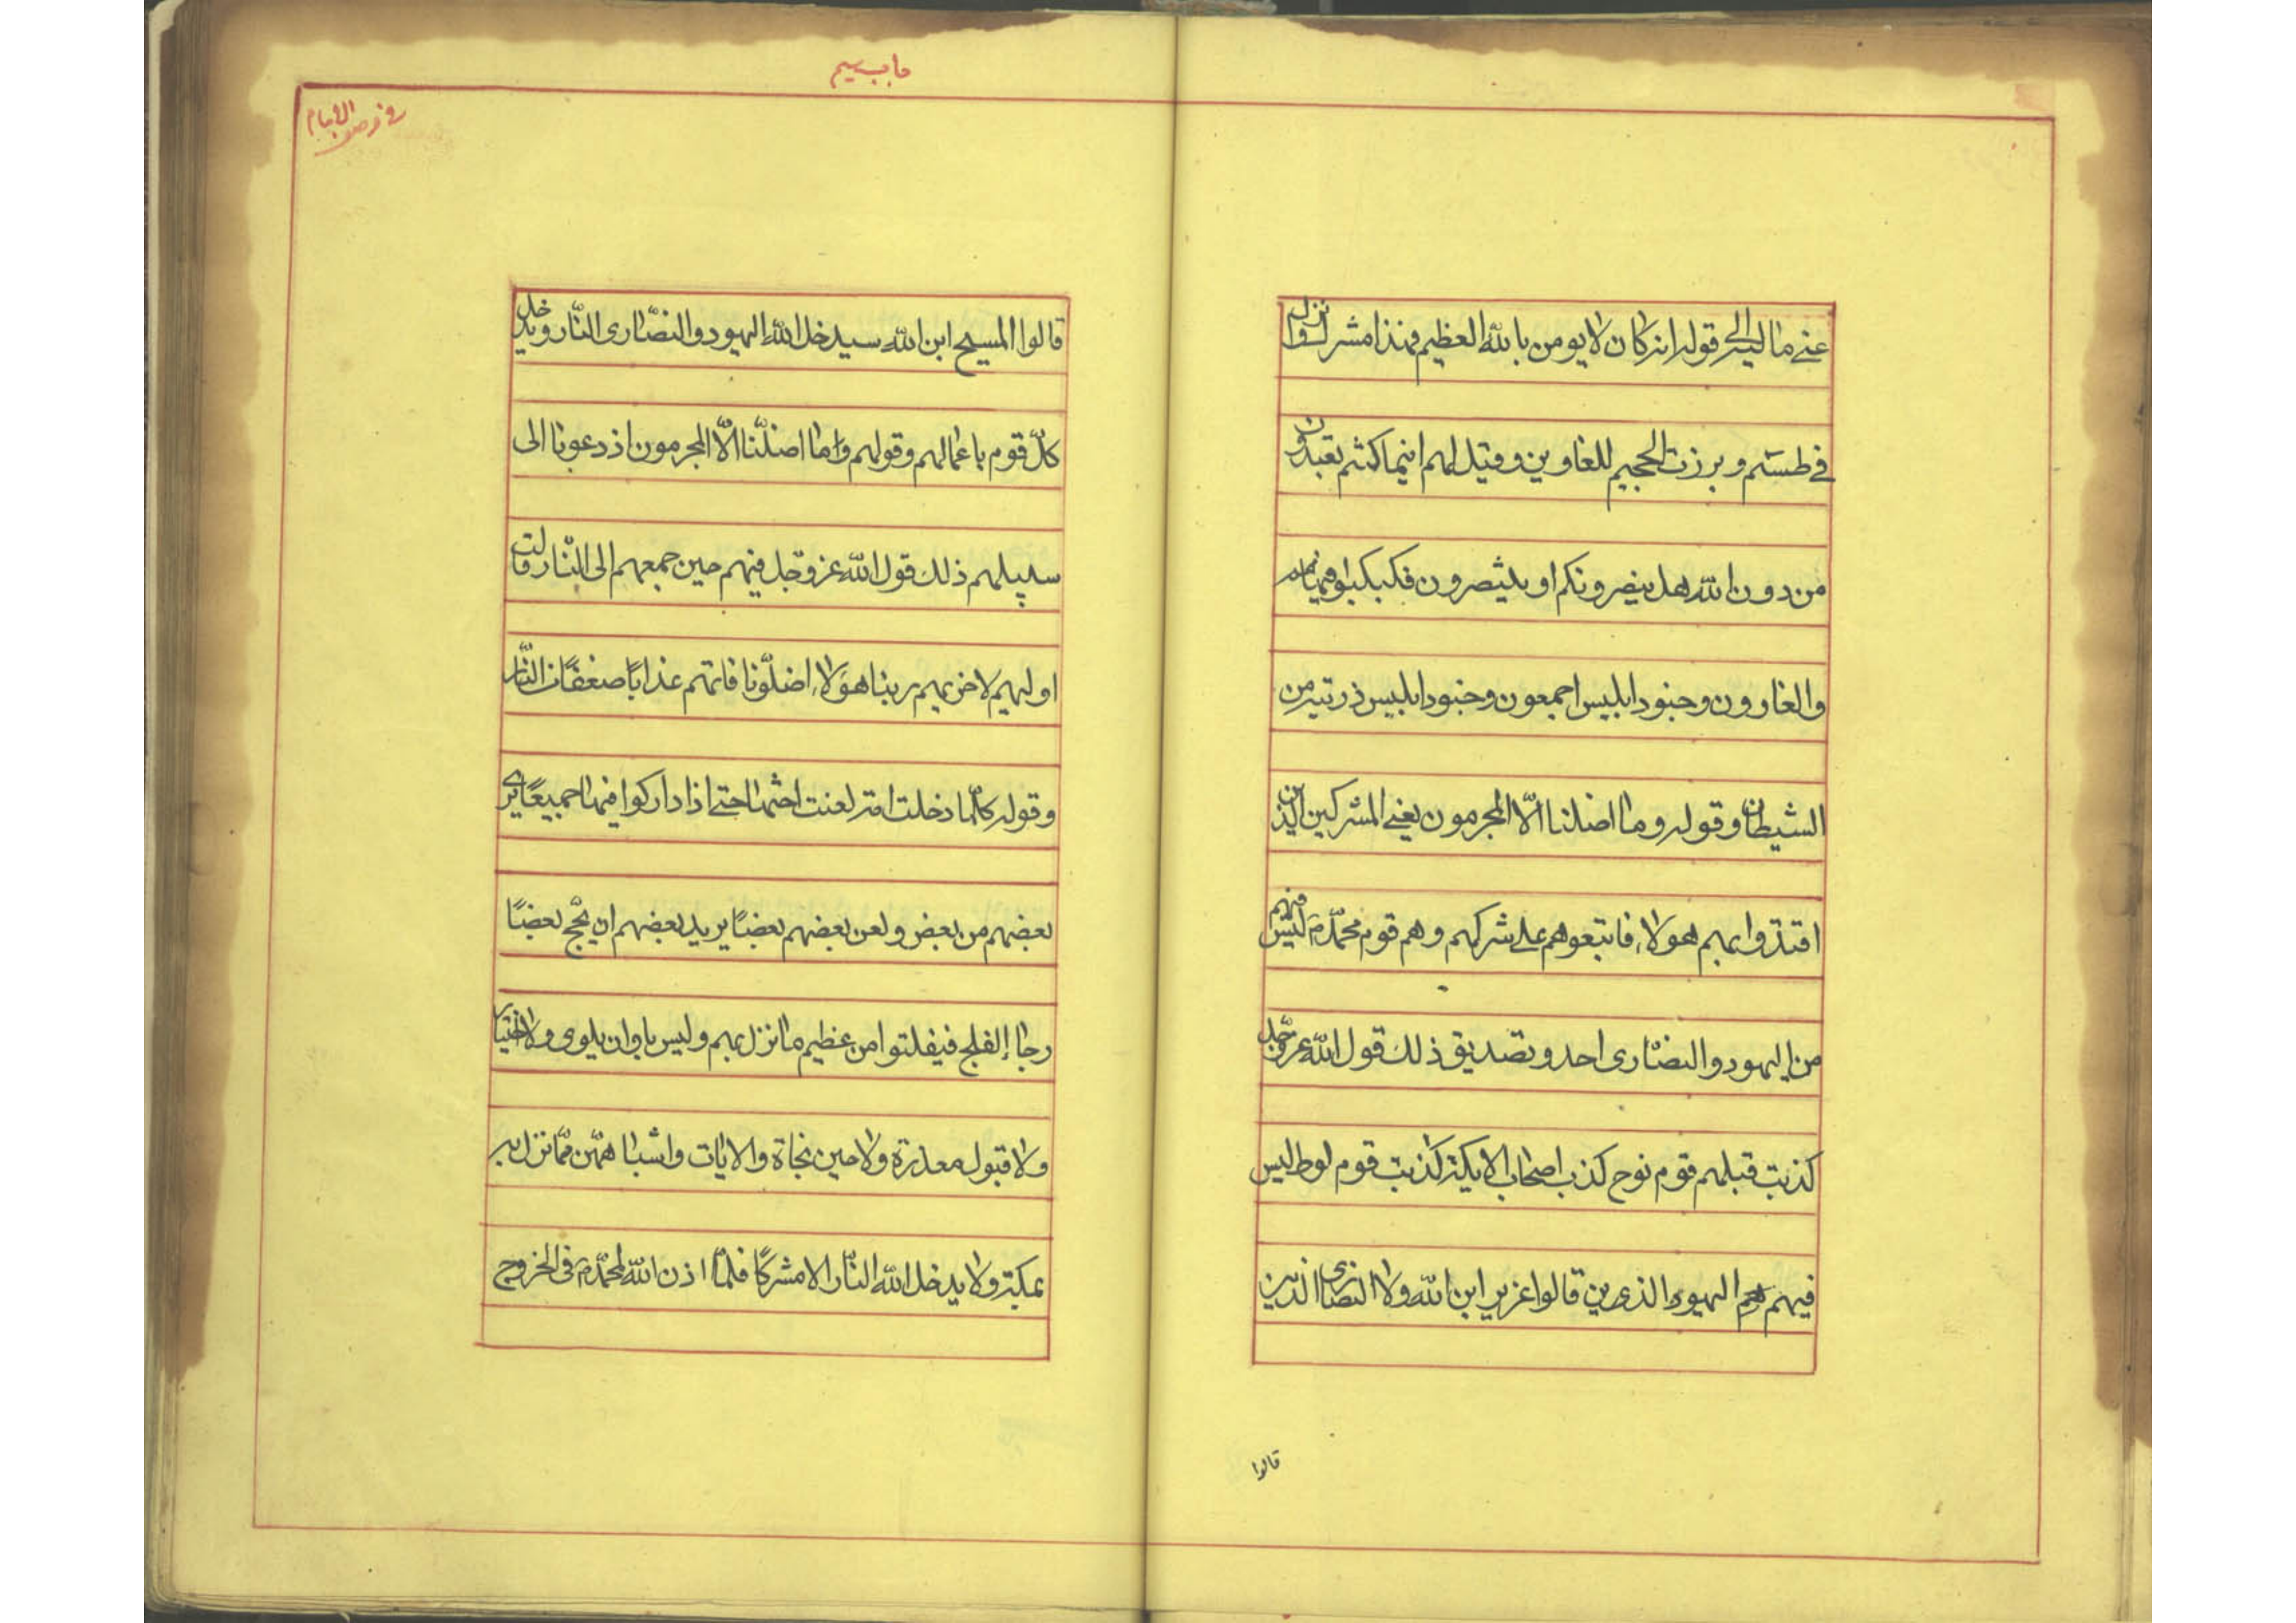 عنى ماليه الى قوله انه كان لا يومن بالله العظيم فهذا مشرك وانزل
فى طسم و برزت الحجيم للغاوين و قيل لهم اينما كنتم تعبدون
من دون الله هل ينصرونكم او ينتصرون فكبكبوا فيها هم
والغاوون و جنود ابليس اجمعون و جنود ابليس ذريته من
الشيطان و قوله و ما اضلنا الّا المجرمون يعنى المشركين الذين
اقتدوا بهم هولاء فاتبعوهم على شركهم و هم قوم محمّد ليس فيهم
من اليهود و النصارى احد و تصديق ذلك قول الله عزّ وجّل
كذبت قبلهم قوم نوح كذب اصحاب الايكة كذبت قوم لوط ليس
فيهم هم اليهود الذين قالوا عزير ابن الله ولا النصارى الذين
قالوا
باب سيم
فى
الايمام
قالوا المسيح ابن الله سيدخل الله اليهود و النصّارى النّار و يدخل
كلّ قوم باعمالهم و قولهم و ما اضلّنا الّا المجرمون اذ دعونا الى
سبيلهم ذلك قول الله عز و جّل فيهم حين جمعهم الى النّار قالت
اوليهم لاخريهم ربنا هؤلاء اضلّونا فاتهم عذابًا ضعفًا من النّار
و قوله كلّما دخلت امة لعنت اختها حتى اذا داركوا فيها جميعًا برئ
بعضهم من بعض و لعن بعضهم بعضًا يريد بعضهم ان يحّج بعضًا
رجاء الفلج فيفلتوا من عظيم ما نزل بهم و ليس باوان بلوى و لا اختبار
و لا قبول معذرة و لا حين نجاة و الايات و اشباههّن ممّا نزل به
بمكة و لا يدخل الله النّار الا مشركًا فلمّا اذن الله لمحمّد فى الخروج